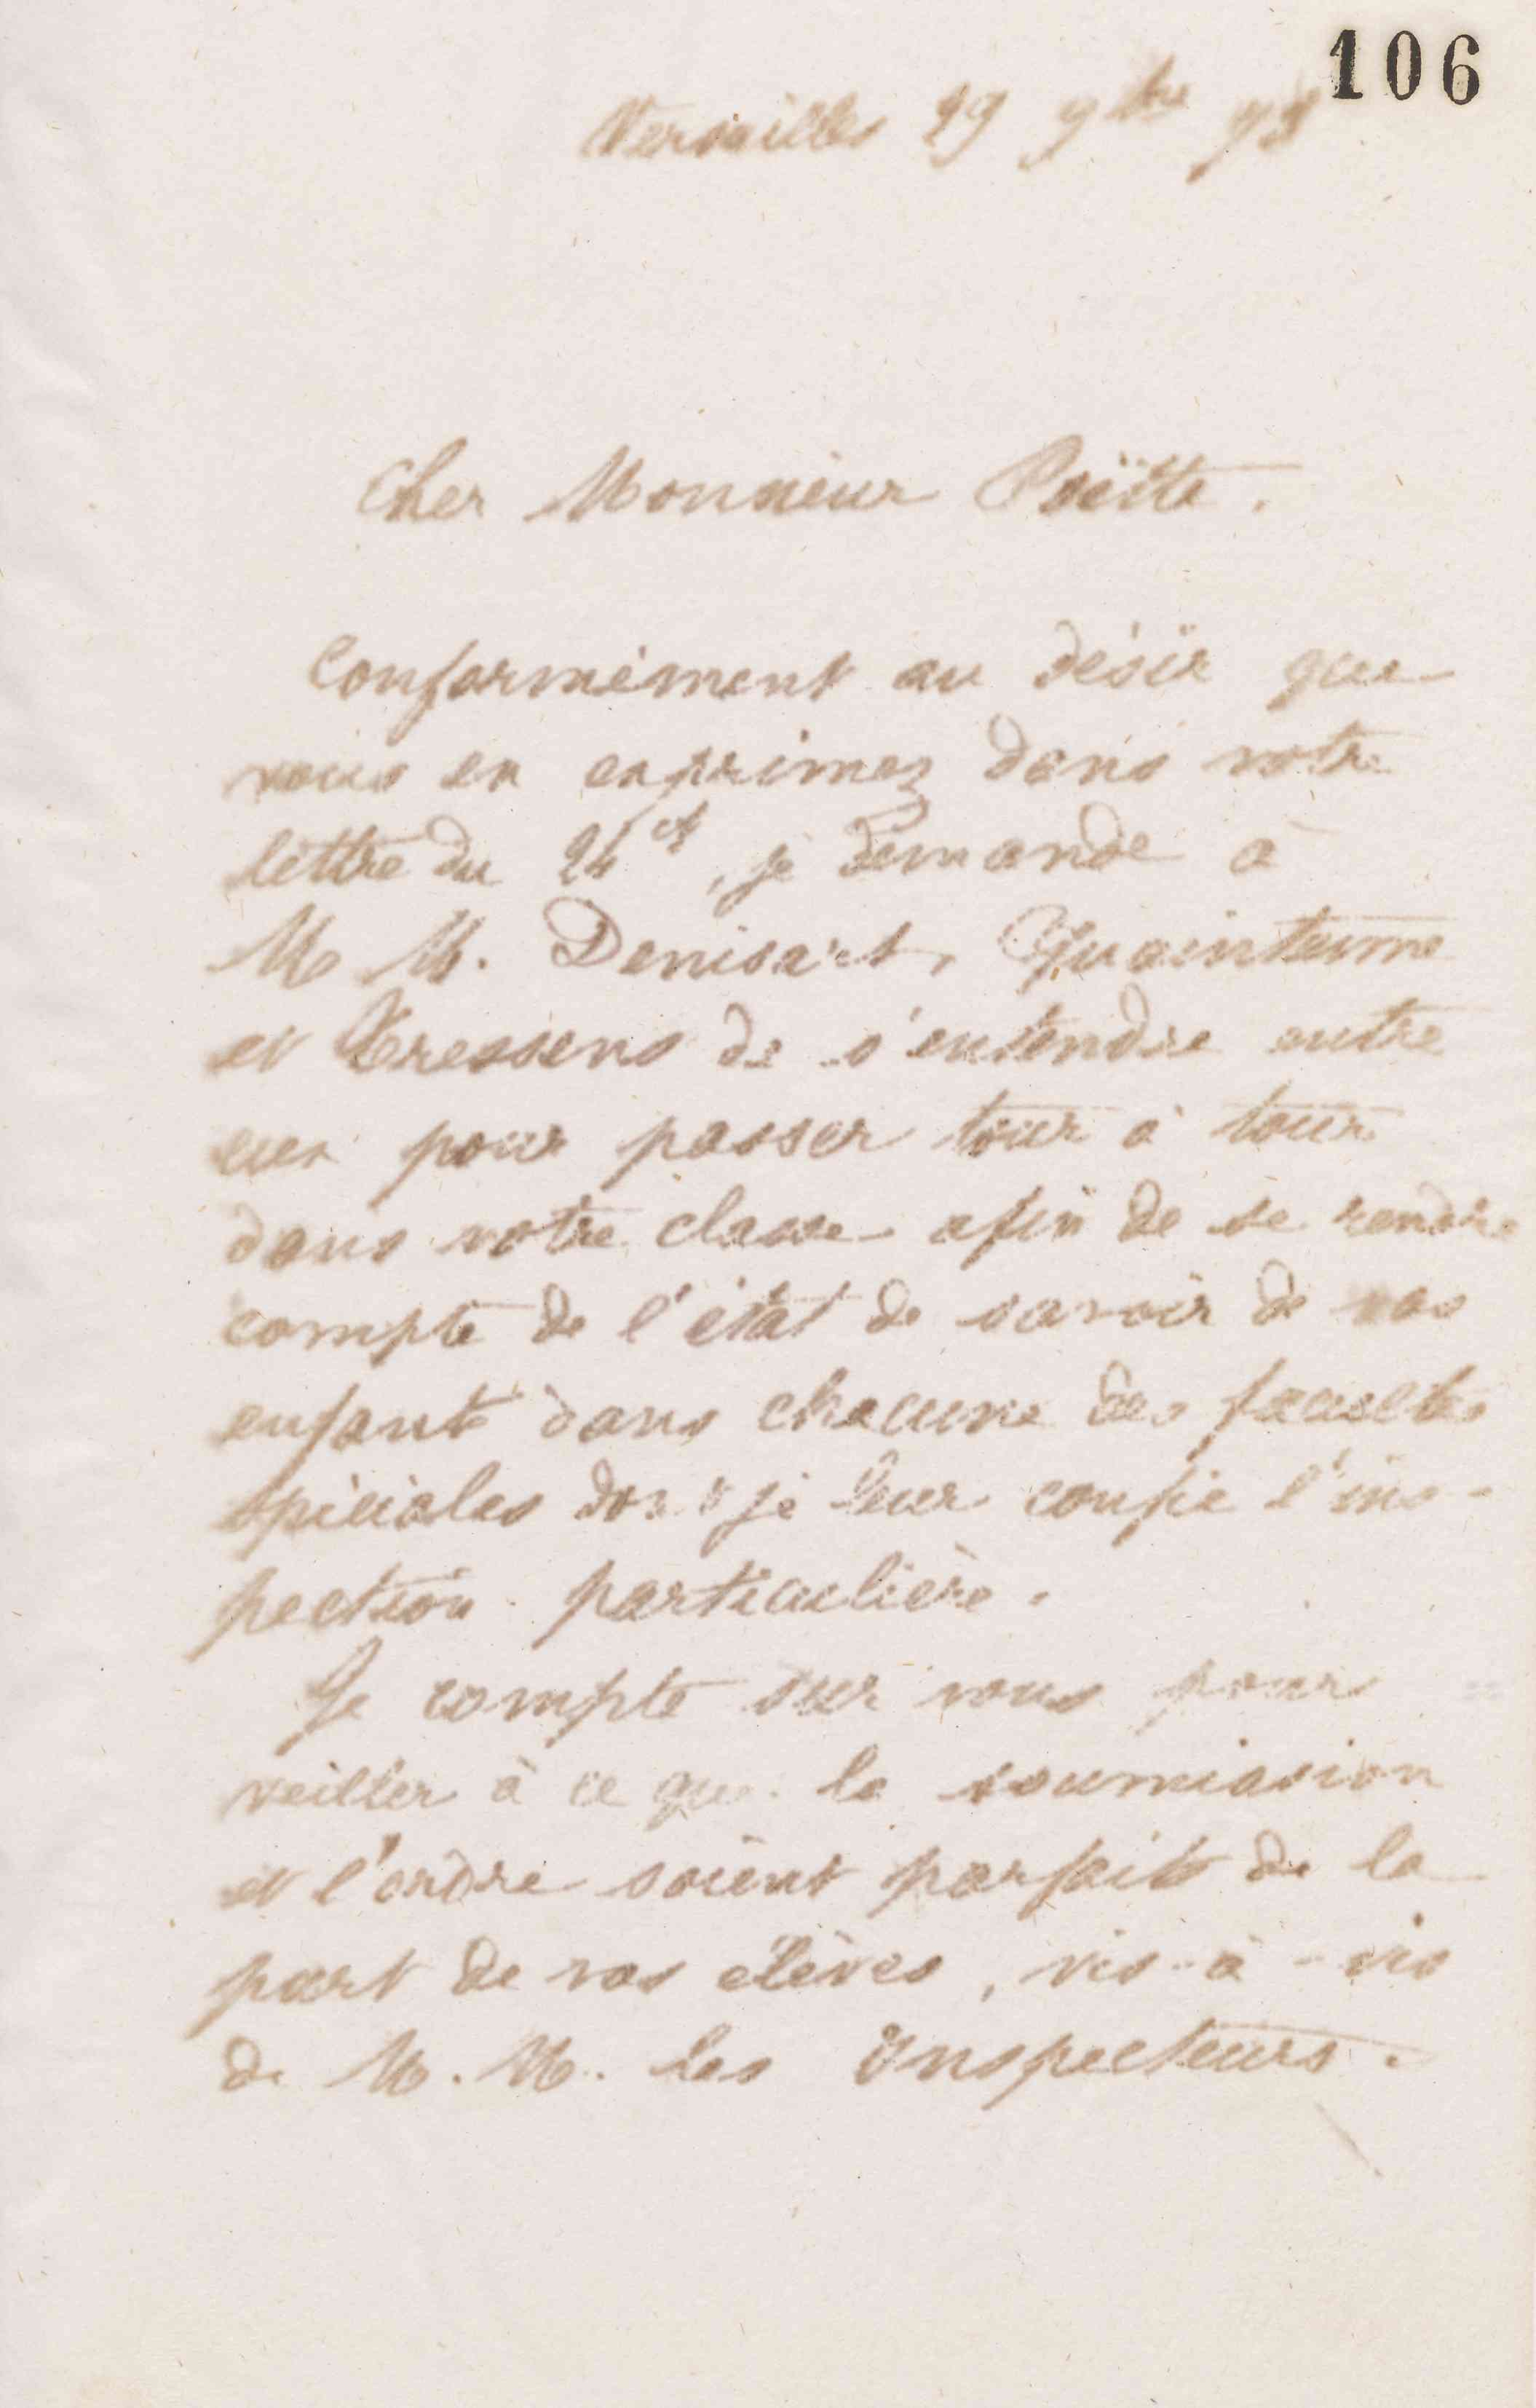 106
Versailles 29 9bre 73
Cher Monsieur Poëtte.
Conformément au désir que
vous en exprimez dans votre
lettre du 24 ct, je demande à
M M. Denisart, Quaintenne
et Tressens de s'entendre entre
eux pour passer tour à tour
dans votre classe afin de se rendre
compte de l'état de savoir de vos
enfants dans chacune des facultés
spéciales dont je leur confie l'ins-
pection particulière.
Je compte sur vous pour
veiller à ce que la soumission
et l'ordre soient parfaits de la
part de vos élèves, vis-à-vis
de M. M. les Inspecteurs.